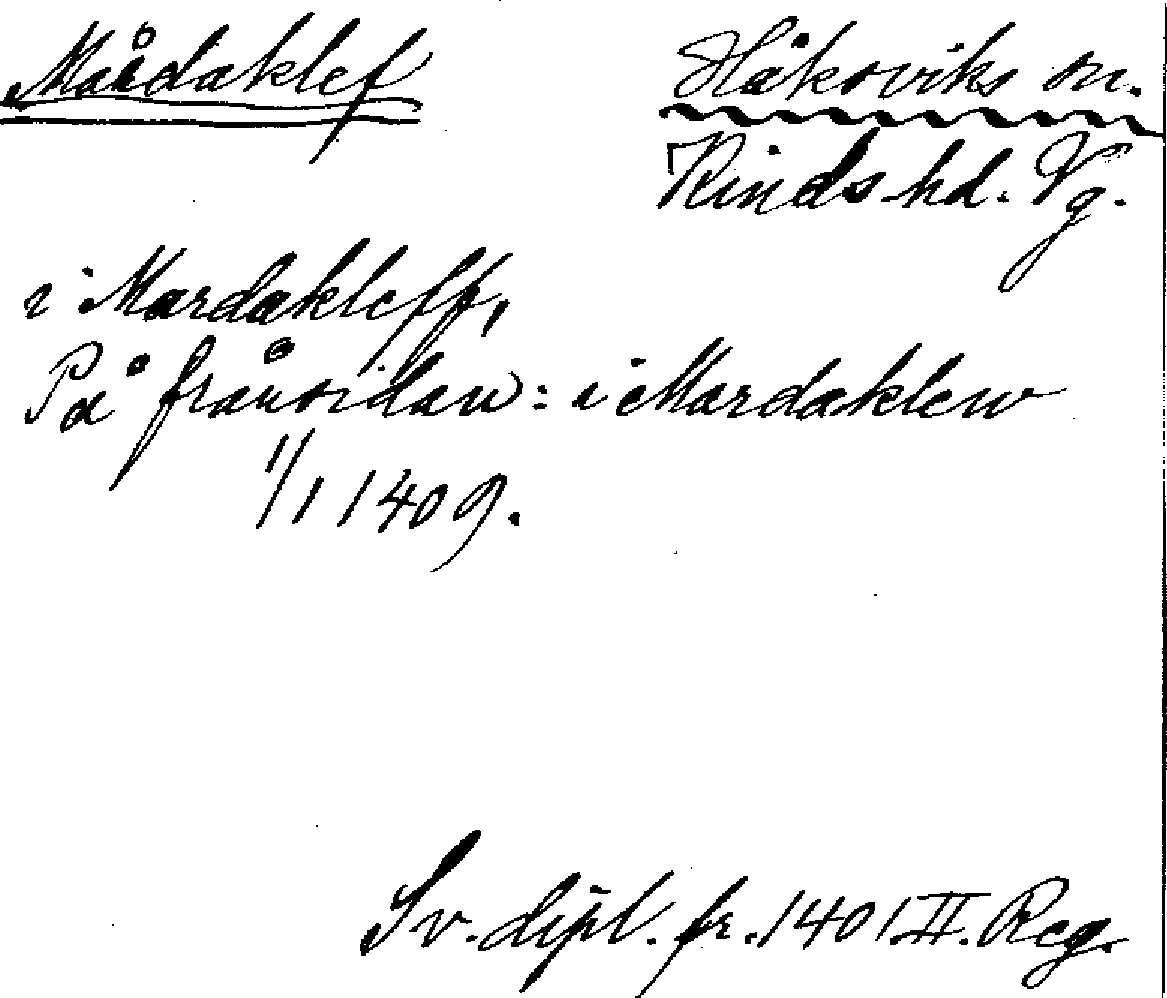 Mårdaklef
Håksviks sn.
Kinds hd. Vg.
i Mardakleff,
På frånsidan: i Mardaklew
1/1 1409.
Sv. dipl. fr. 1401 II. Reg.